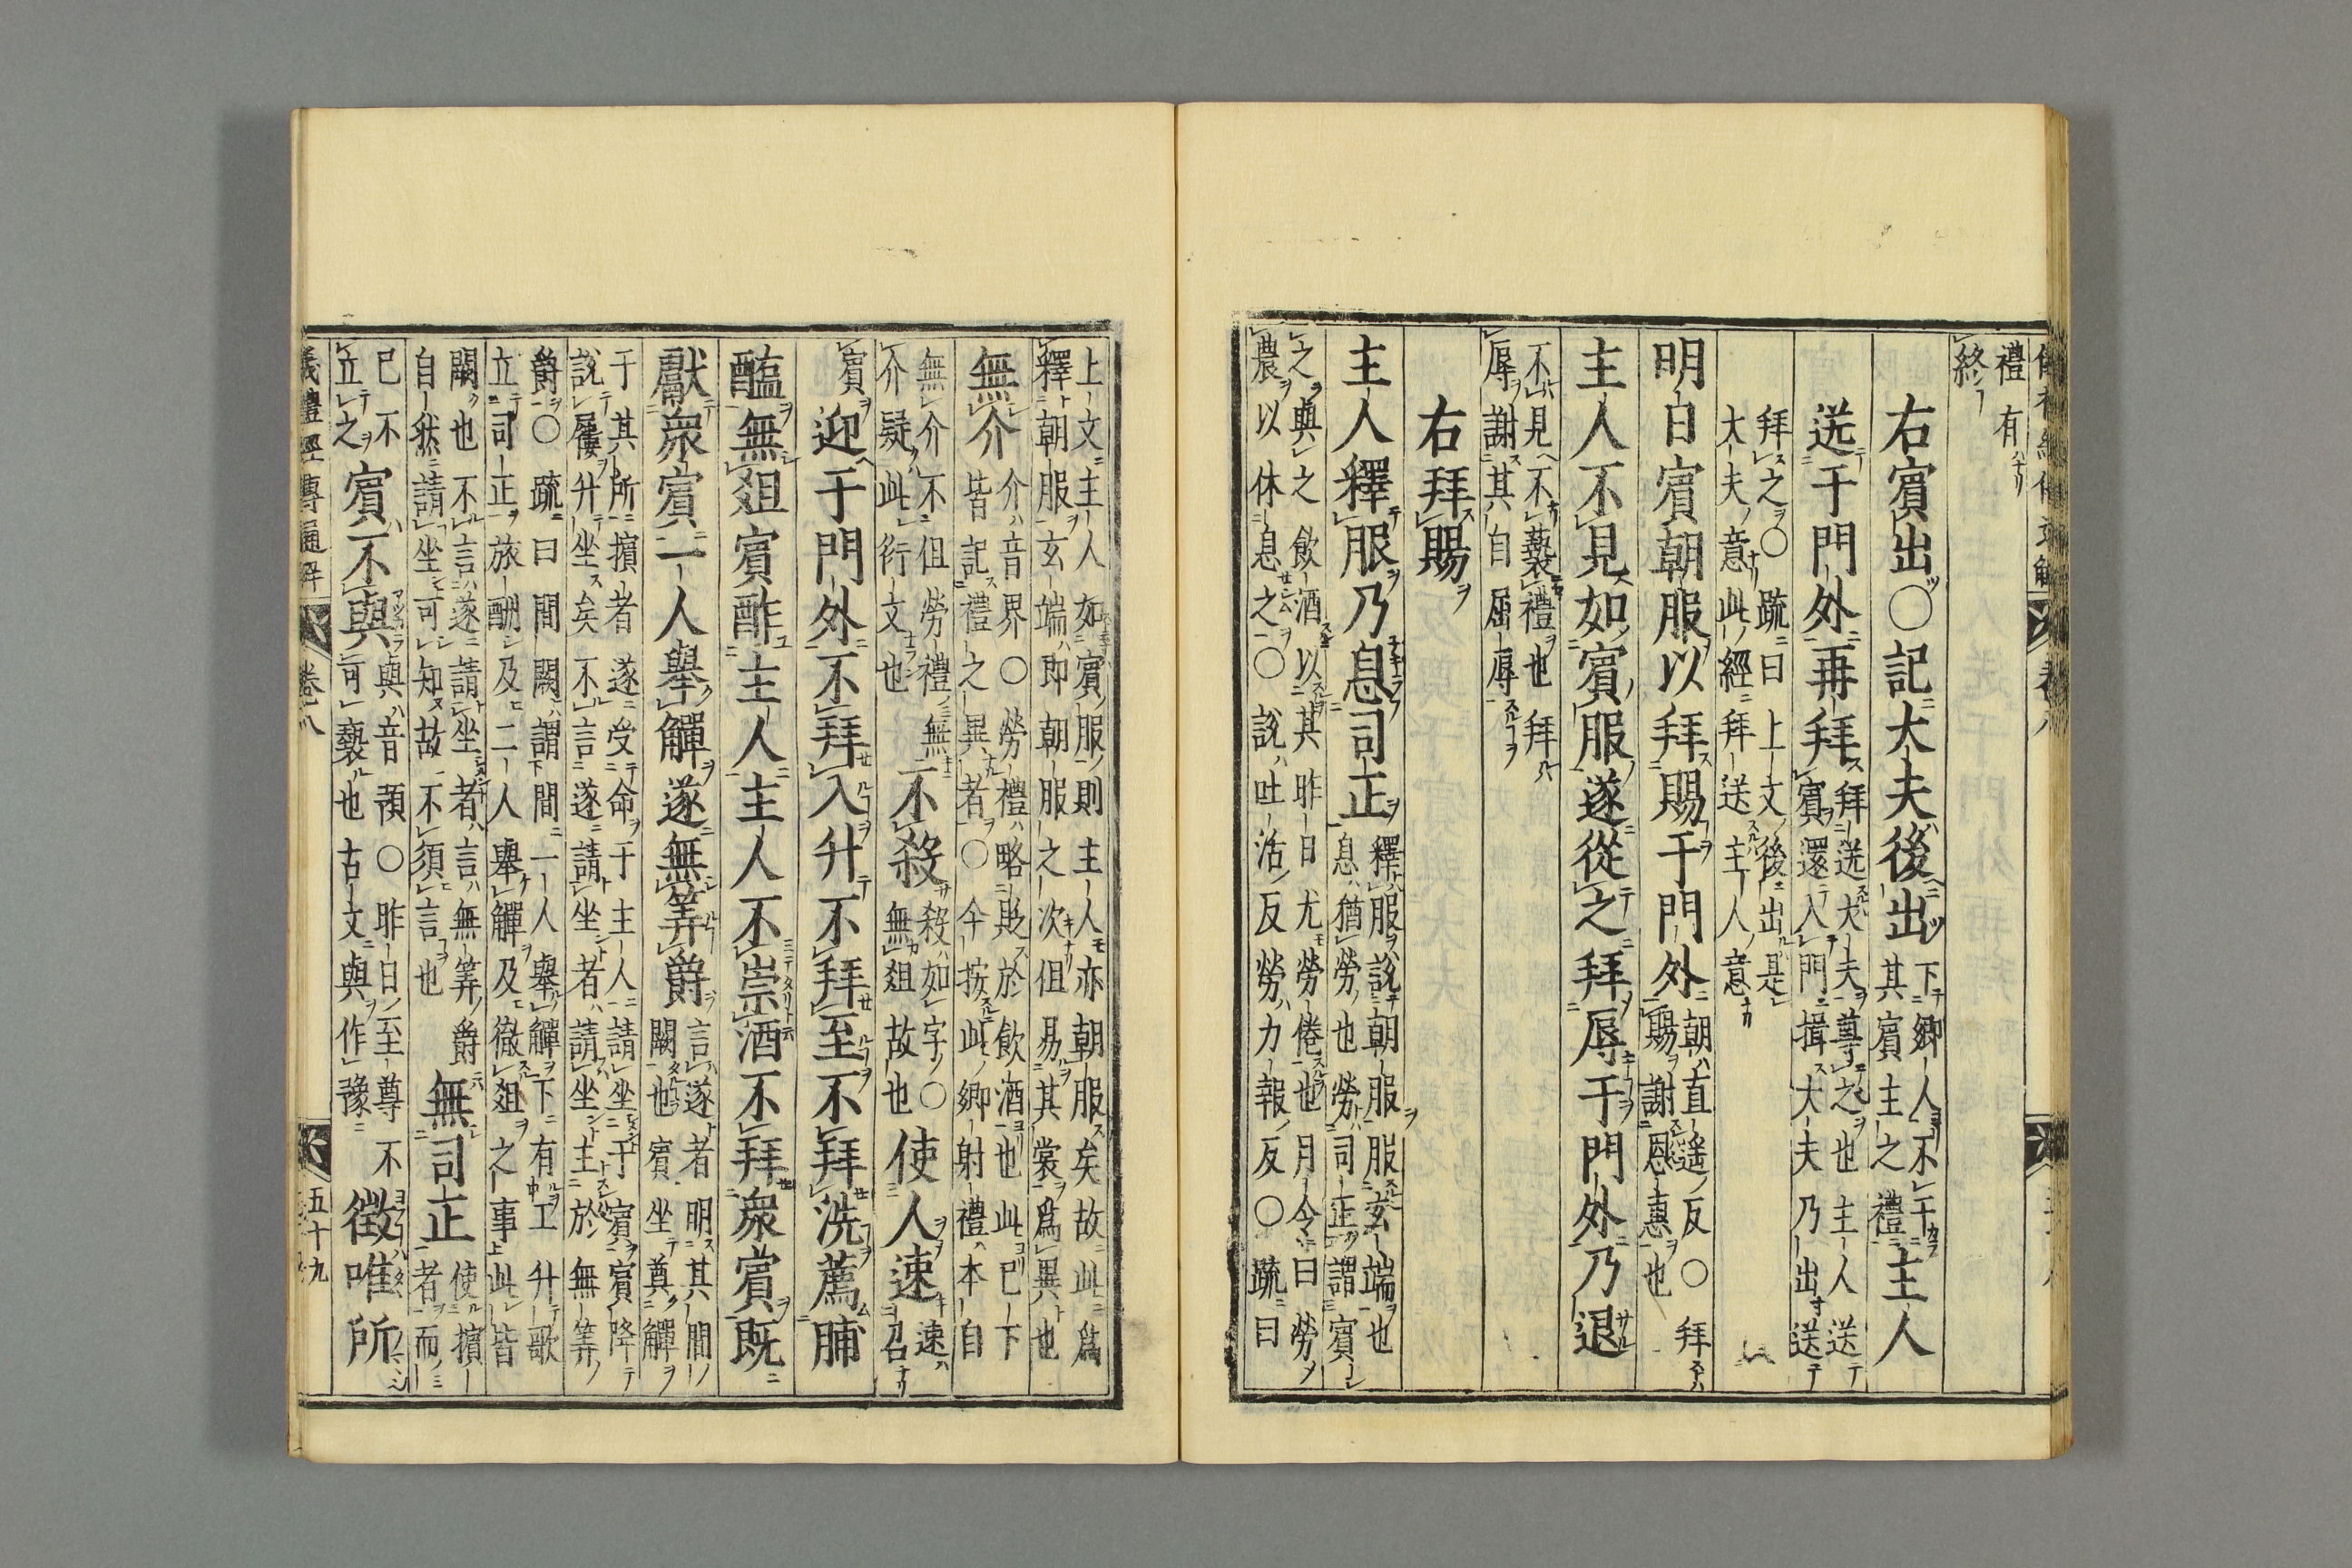 禮有
終
右賓出〇記大夫後出
下卿人不干
其賓主之禮
主人
送于門外再拜
拜送大夫尊之也主人送
賓還入門揖大夫乃出送
拜之〇疏曰上文後出是
大夫意此經拜送主人意
明日賓朝服以拜賜于門外
朝直遥反〇拜
賜謝恩惠也
主人不見如賓服遂從之拜辱于門外乃退
不見不褻禮也拜
辱謝其自屈辱
右拜賜
主人釋服乃息司正
釋服說朝服服玄端也
息猶勞也勞司正謂賓
之與之飲酒以其昨日尤勞倦也月令曰勞
農以休息之〇說吐活反勞力報反〇疏曰
上文主人如賓服則主人亦朝服矣故此爲
釋朝服玄端即朝服之次但易其裳爲異也
無介
介音界〇勞禮略貶於飲酒也此已下
皆記禮之異者〇今按此鄉射禮本自
無介不但勞禮無
介疑此衍文也
不殺
殺如字〇
無俎故也
使人速
速
召
賓
迎于門外不拜入升不拜至不拜洗薦脯
醢無俎賓酢主人主人不崇酒不拜衆賓既
獻衆賓一人舉觶遂無筭爵
言遂者明其間
闕也賓坐奠觶
于其所擯者遂受命于主人請坐于賓賓降
說屨升坐矣不言遂請坐者請坐主於無筭
爵〇疏曰間闕謂間一人舉觶下有工升歌
立司正旅酬及二人舉觶及徹俎之事此皆
闕也不言遂請坐者言無筭爵
自然請坐可知故不須言也
無司正
使擯
者而
已不
立之
賓不與
與音預〇昨日至尊不
可褻也古文與作豫
徵唯所
儀禮經傳通解 卷八 五十九